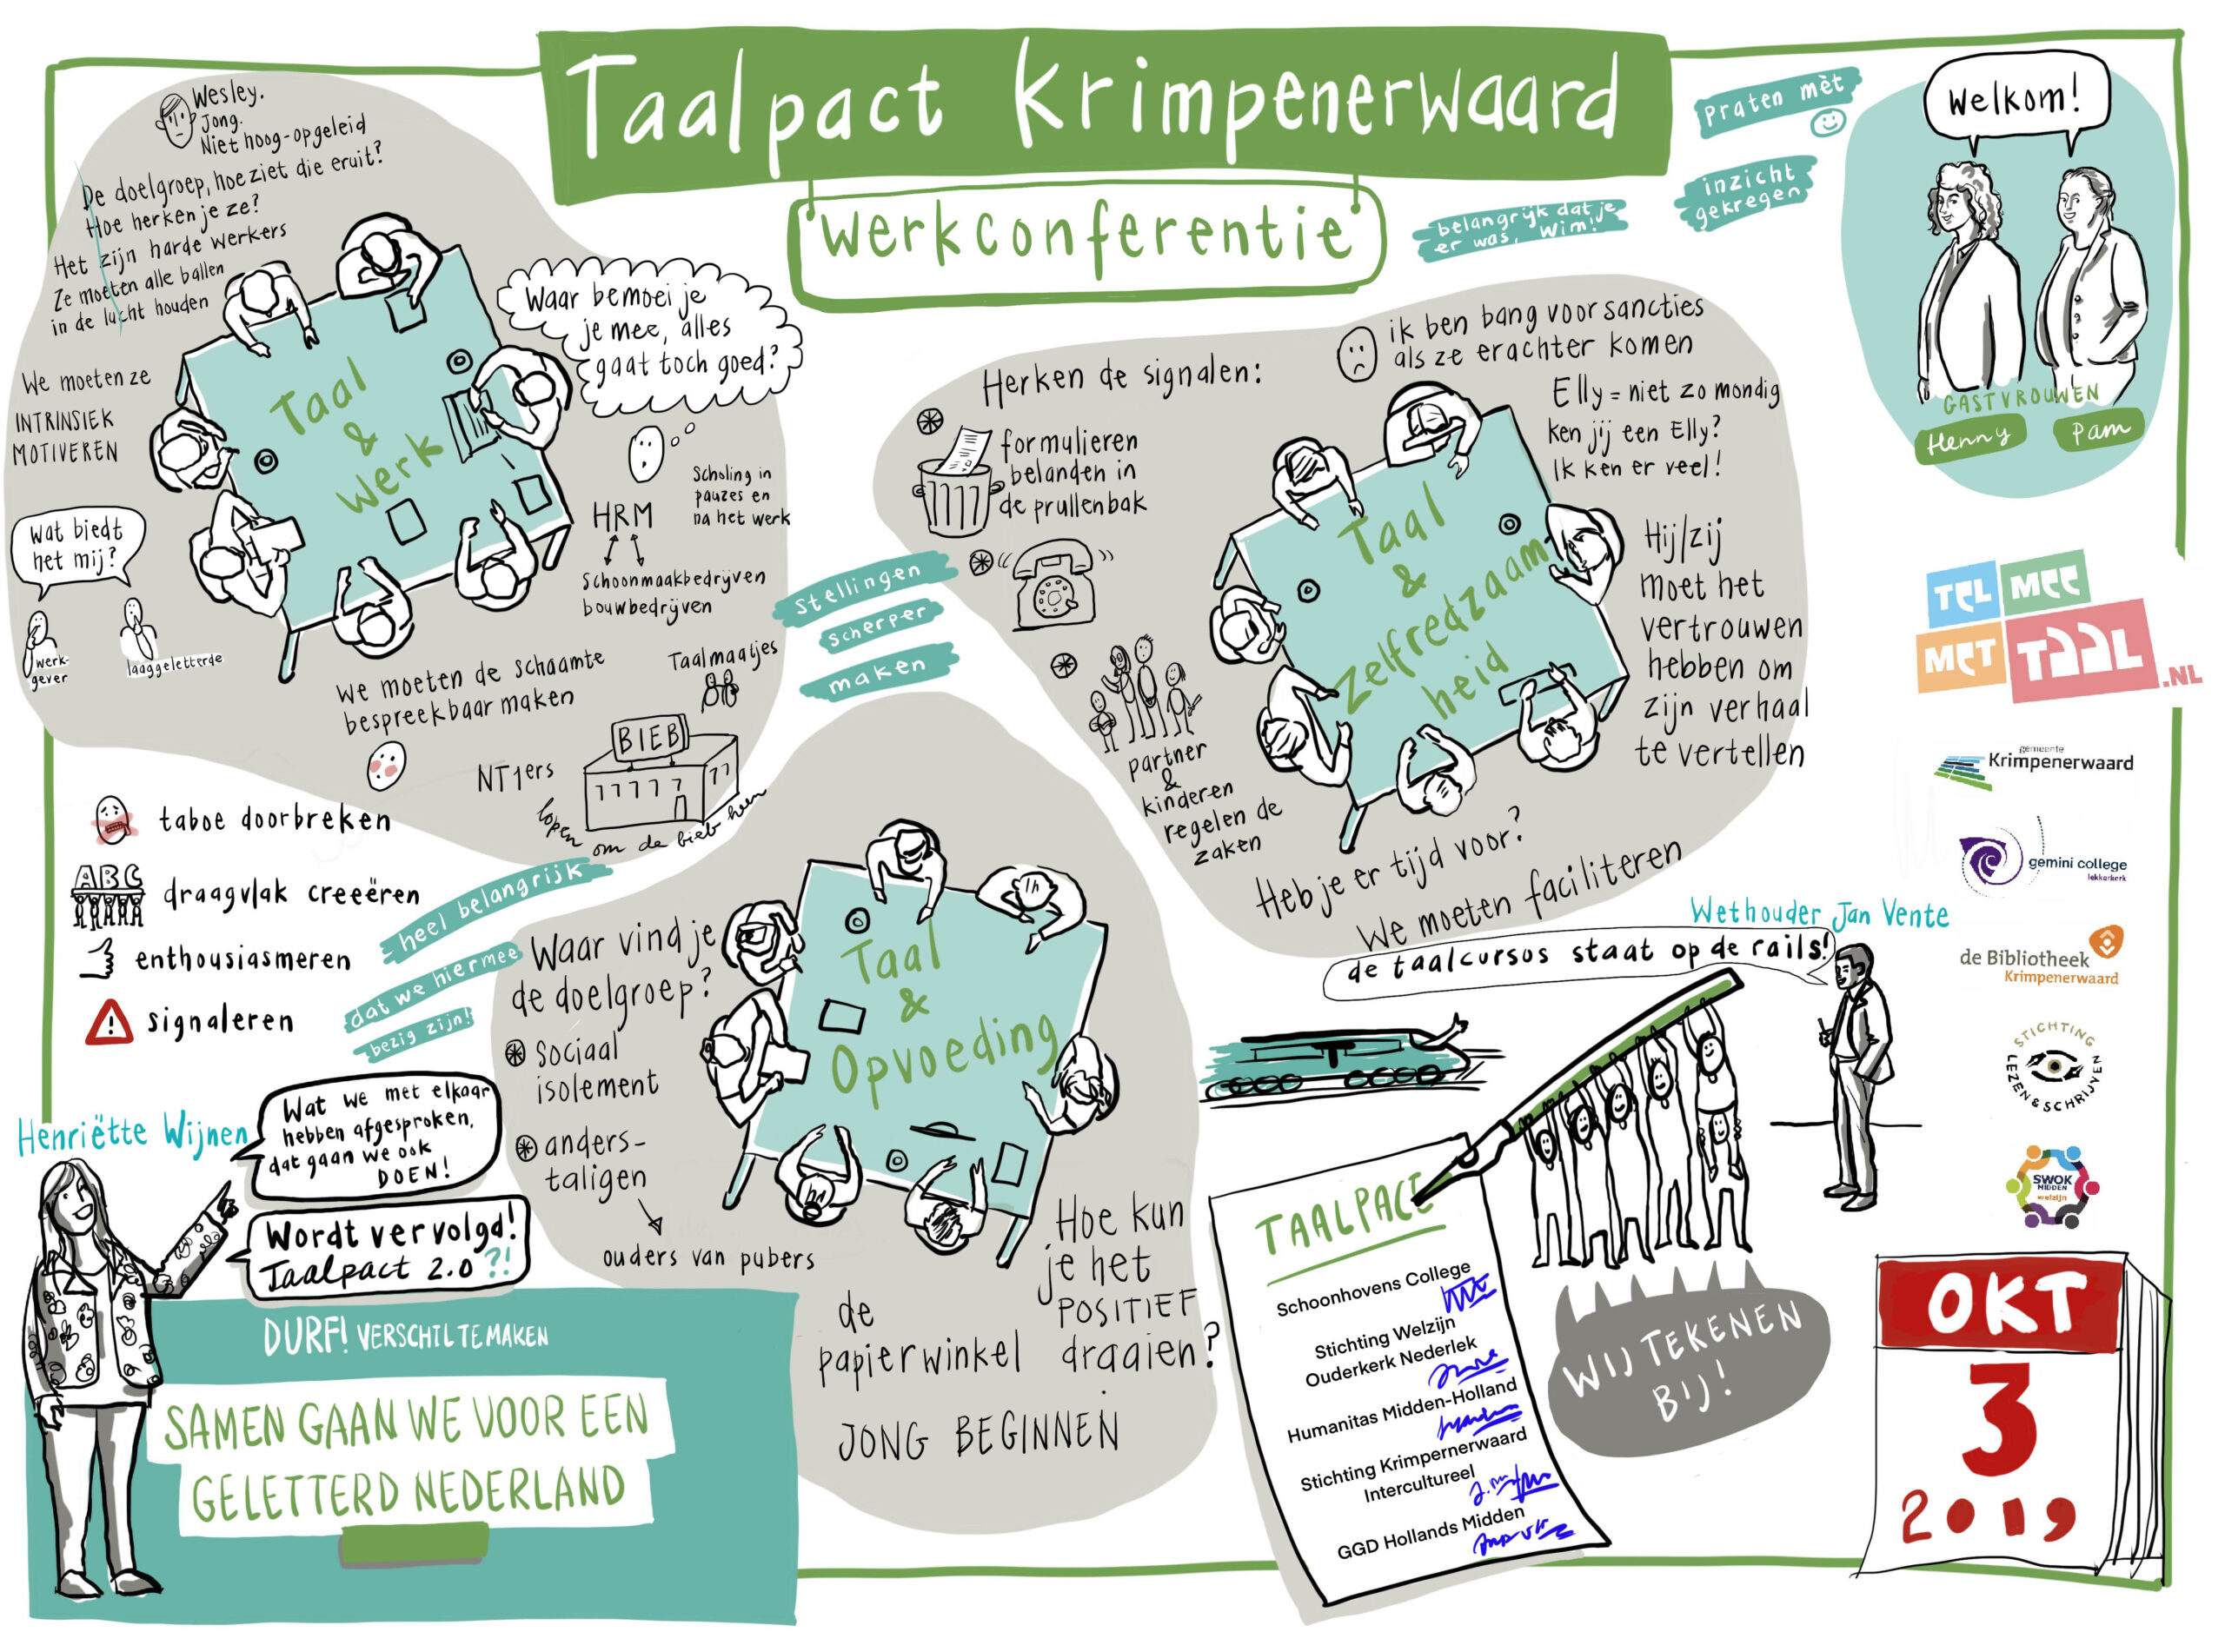 Taalpact Krimpenerwaard
Werkconferentie
Praten mèt
inzicht
gekregen
belangrijk dat je
er was, Wim!
Welkom!
GASTVROUWEN
Henny
Pam
Wesley.
Jong.
Niet hoog-opgeleid
De doelgroep, hoe ziet die eruit?
Hoe herken je ze?
Het zijn harde werkers
Ze moeten alle ballen
in de lucht houden
We moeten ze
INTRINSIEK
MOTIVEREN
Wat biedt
het mij?
werk-
gever
laaggeletterde
Taal
&
Werk
Waar bemoei je
je mee, alles
gaat toch goed?
Scholing in
pauzes en
na het werk
HRM
Schoonmaakbedrijven
bouwbedrijven
We moeten de schaamte
bespreekbaar maken
Taalmaatjes
BIEB
NT1ers
lopen om de bieb heen
stellingen
scherper
maken
Herken de signalen:
formulieren
belanden in
de prullenbak
partner
&
kinderen
regelen de
zaken
ik ben bang voor sancties
als ze erachter komen
Elly = niet zo mondig
Ken jij een Elly?
Ik ken er veel!
Taal
&
Zelfredzaam
heid
Hij/zij
moet het
vertrouwen
hebben om
zijn verhaal
te vertellen
Heb je er tijd voor?
We moeten faciliteren
TEL MEE
MET TAAL
.NL
gemeente
Krimpenerwaard
gemini college
lekkerkerk
de Bibliotheek
Krimpenerwaard
STICHTING
LEZEN & SCHRIJVEN
SWOK
MIDDEN
welzijn
taboe doorbreken
ABC
draagvlak creeëren
enthousiasmeren
signaleren
heel belangrijk
dat we hiermee
bezig zijn!
Waar vind je
de doelgroep?
Sociaal
isolement
anders-
taligen
ouders van pubers
Taal
&
Opvoeding
Hoe kun
je het
POSITIEF
draaien?
de
papierwinkel
JONG BEGINNEN
Wethouder Jan Vente
de taalcursos staat op de rails!
T
Henriëtte Wijnen
Wat we met elkaar
hebben afgesproken,
dat gaan we ook
DOEN!
Wordt vervolgd!
Taalpact 2.0 ?!
DURF! VERSCHIL TE MAKEN
SAMEN GAAN WE VOOR EEN
GELETTERD NEDERLAND
TAALPACT
Schoonhovens College
Stichting Welzijn
Ouderkerk Nederlek
Humanitas Midden-Holland
Stichting Krimpernerwaard
Intercultureel
GGD Hollands Midden
WIJ TEKENEN
BIJ!
OKT
3
2019